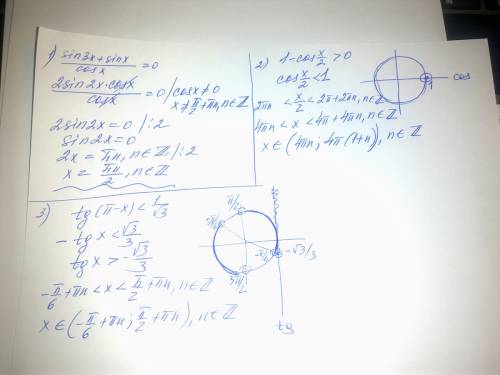 1) (sin3x + sinx)/cosx = 0
(2sin2x · cosx)/cosx = 0 / cosx ≠ 0
x ≠ π/2 + πn, n∈ℤ
2sin2x = 0 /:2
sin2x = 0
2x = πn, n∈ℤ /:2
x = πn/2, n∈ℤ
2) 1 - cos x/2 > 0
cos x/2 < 1
2πn < x/2 < 2π + 2πn, n∈ℤ
4πn < x < 4π + 4πn, n∈ℤ
x∈(4πn; 4π(1+n)), n∈ℤ
cos
1
3) tg(π-x) < 1/√3
-tgx < √3/3
tgx > -√3/3
-π/6 + πn < x < π/2 + πn, n∈ℤ
x∈(-π/6 + πn; π/2 + πn), n∈ℤ
π/2
5π/6
-π/6
-√3/3
3π/2
tg